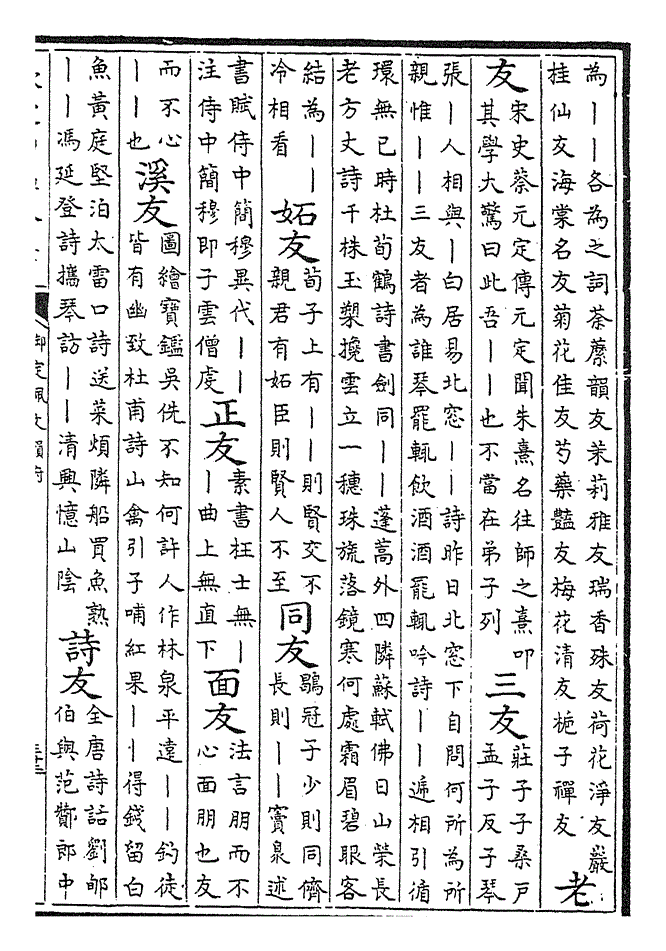 為｜｜各為之詞荼蘼韻友茉莉雅友瑞香殊友荷花淨友巖
桂仙友海棠名友菊花佳友芍藥豔友梅花清友梔子禪友
老
友
宋史蔡元定傳元定聞朱熹名往師之熹叩
其學大驚曰此吾｜｜也不當在弟子列
三友
莊子子桑戶
孟子反子琴
張｜人相與｜白居易北窓｜｜詩昨日北窓下自問何所為所
親惟｜｜三友者為誰琴罷輒飲酒酒罷輒吟詩｜｜遞相引循
環無已時杜荀鶴詩書劍同｜｜蓬蒿外四隣蘇軾佛日山榮長
老方丈詩千株玉槊攙雲立一穗珠旒落鏡寒何處霜眉碧眼客
結為｜｜
冷相看
妬友
荀子上有｜｜則賢交不
親君有妬臣則賢人不至
同友
鶡冠子少則同儕
長則｜｜竇臮述
書賦侍中簡穆異代｜｜
注侍中簡穆即子雲僧虔
正友
素書枉士無｜
｜曲上無直下
面友
法言朋而不
心面朋也友
而不心
｜｜也
溪友
圖繪寶鑑吳侁不知何許人作林泉平遠｜｜釣徒
皆有幽致杜甫詩山禽引子哺紅果｜｜得錢留白
魚黃庭堅泊太雷口詩送菜煩隣船買魚熟
｜｜馮延登詩攜琴訪｜｜清興憶山陰
詩友
全唐詩話劉郇
伯與范酇郎中
御定佩文韻府